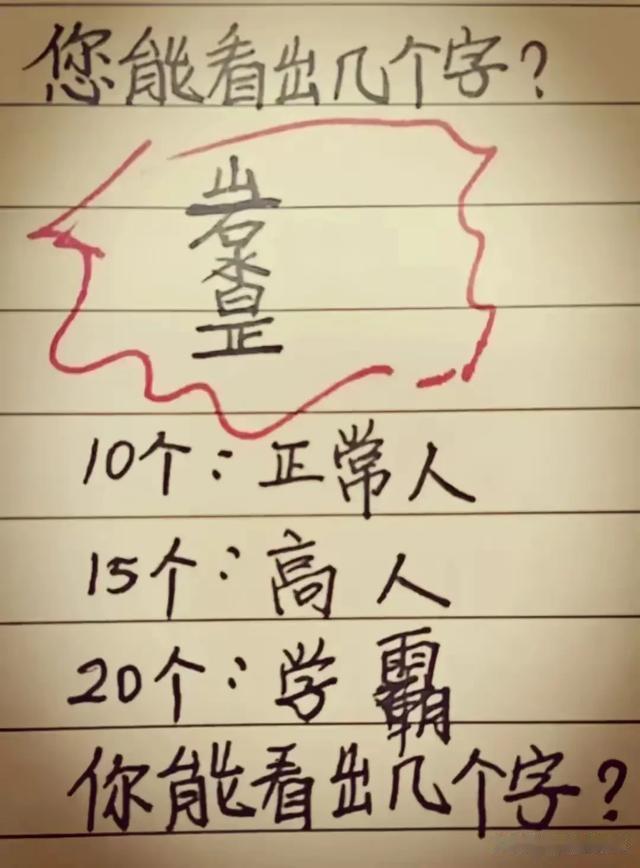 您能看出几个字？
10个：正常人
15个：高人
20个：学霸
你能看出几个字？